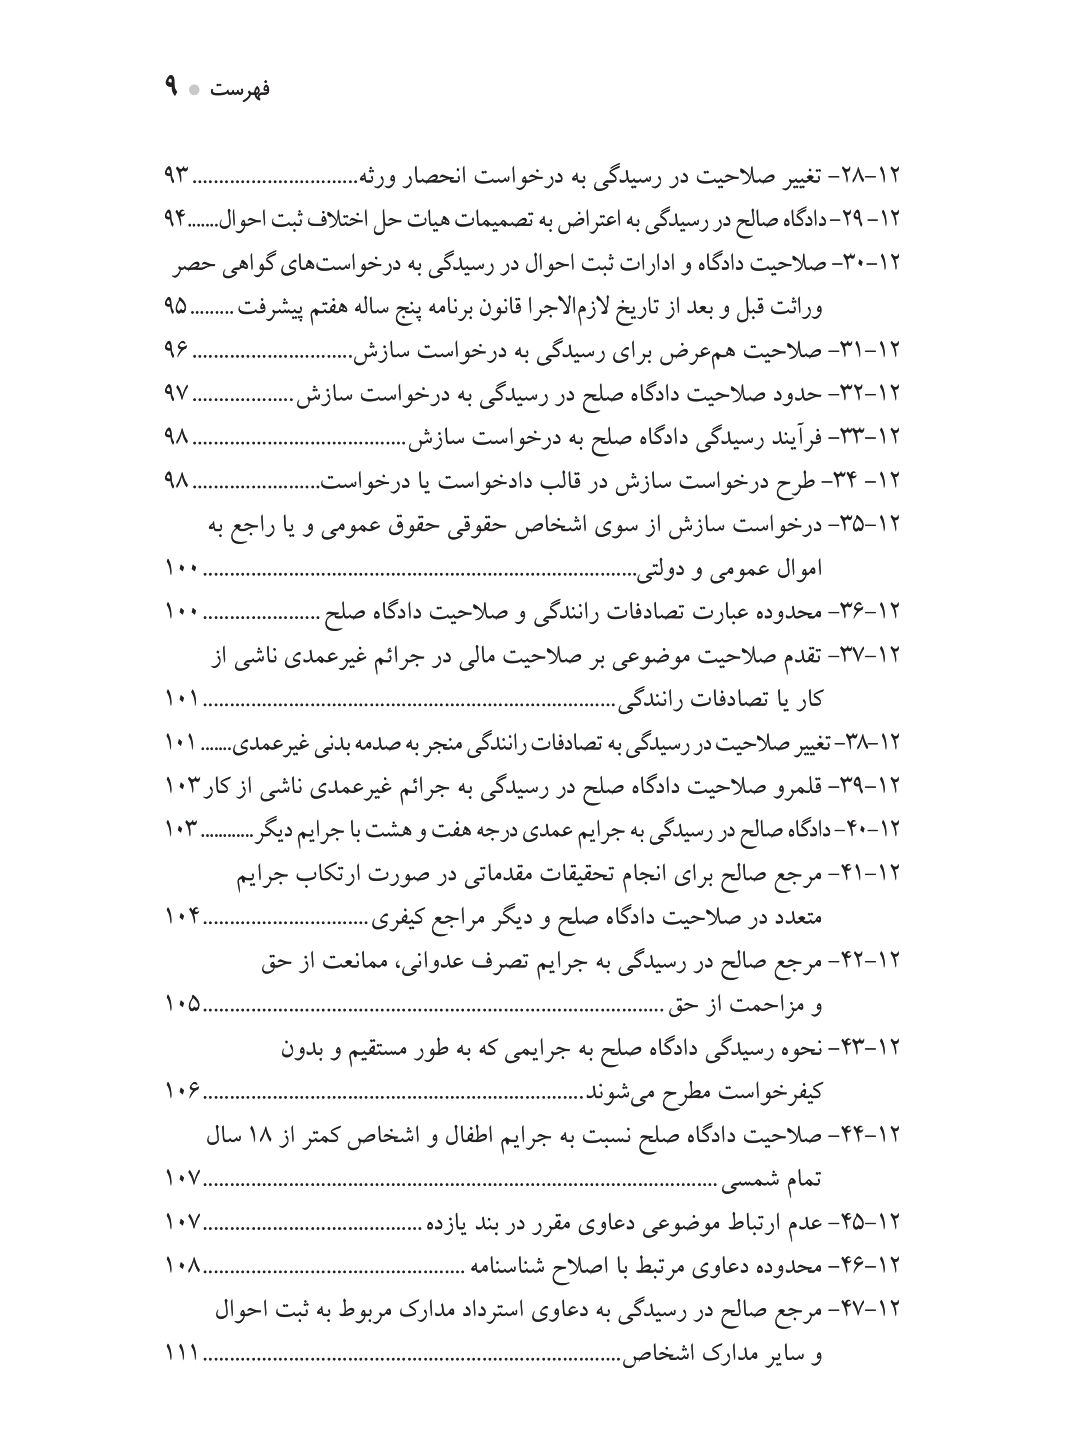 فهرست ● ۹
۱۲–۲۸– تغییر صلاحیت در رسیدگی به درخواست انحصار ورثه............................... ۹۳
۱۲– ۲۹– دادگاه صالح در رسیدگی به اعتراض به تصمیمات هیات حل اختلاف ثبت احوال....... ۹۴
۱۲–۳۰– صلاحیت دادگاه و ادارات ثبت احوال در رسیدگی به درخواست‌های گواهی حصر
وراثت قبل و بعد از تاریخ لازم‌الاجرا قانون برنامه پنج ساله هفتم پیشرفت ......... ۹۵
۱۲–۳۱– صلاحیت هم‌عرض برای رسیدگی به درخواست سازش.............................. ۹۶
۱۲–۳۲– حدود صلاحیت دادگاه صلح در رسیدگی به درخواست سازش ................... ۹۷
۱۲–۳۳– فرآیند رسیدگی دادگاه صلح به درخواست سازش........................................ ۹۸
۱۲– ۳۴– طرح درخواست سازش در قالب دادخواست یا درخواست........................ ۹۸
۱۲–۳۵– درخواست سازش از سوی اشخاص حقوقی حقوق عمومی و یا راجع به
اموال عمومی و دولتی................................................................................. ۱۰۰
۱۲–۳۶– محدوده عبارت تصادفات رانندگی و صلاحیت دادگاه صلح ...................... ۱۰۰
۱۲–۳۷– تقدم صلاحیت موضوعی بر صلاحیت مالی در جرائم غیرعمدی ناشی از
کار یا تصادفات رانندگی............................................................................. ۱۰۱
۱۲–۳۸– تغییر صلاحیت در رسیدگی به تصادفات رانندگی منجر به صدمه بدنی غیرعمدی....... ۱۰۱
۱۲–۳۹– قلمرو صلاحیت دادگاه صلح در رسیدگی به جرائم غیرعمدی ناشی از کار ۱۰۳
۱۲–۴۰– دادگاه صالح در رسیدگی به جرایم عمدی درجه هفت و هشت با جرایم دیگر............ ۱۰۳
۱۲–۴۱– مرجع صالح برای انجام تحقیقات مقدماتی در صورت ارتکاب جرایم
متعدد در صلاحیت دادگاه صلح و دیگر مراجع کیفری ............................... ۱۰۴
۱۲–۴۲– مرجع صالح در رسیدگی به جرایم تصرف عدوانی، ممانعت از حق
و مزاحمت از حق ...................................................................................... ۱۰۵
۱۲–۴۳– نحوه رسیدگی دادگاه صلح به جرایمی که به طور مستقیم و بدون
کیفرخواست مطرح می‌شوند....................................................................... ۱۰۶
۱۲–۴۴– صلاحیت دادگاه صلح نسبت به جرایم اطفال و اشخاص کمتر از ۱۸ سال
تمام شمسی ................................................................................................ ۱۰۷
۱۲–۴۵– عدم ارتباط موضوعی دعاوی مقرر در بند یازده ......................................... ۱۰۷
۱۲–۴۶– محدوده دعاوی مرتبط با اصلاح شناسنامه ................................................. ۱۰۸
۱۲–۴۷– مرجع صالح در رسیدگی به دعاوی استرداد مدارک مربوط به ثبت احوال
و سایر مدارک اشخاص.............................................................................. ۱۱۱